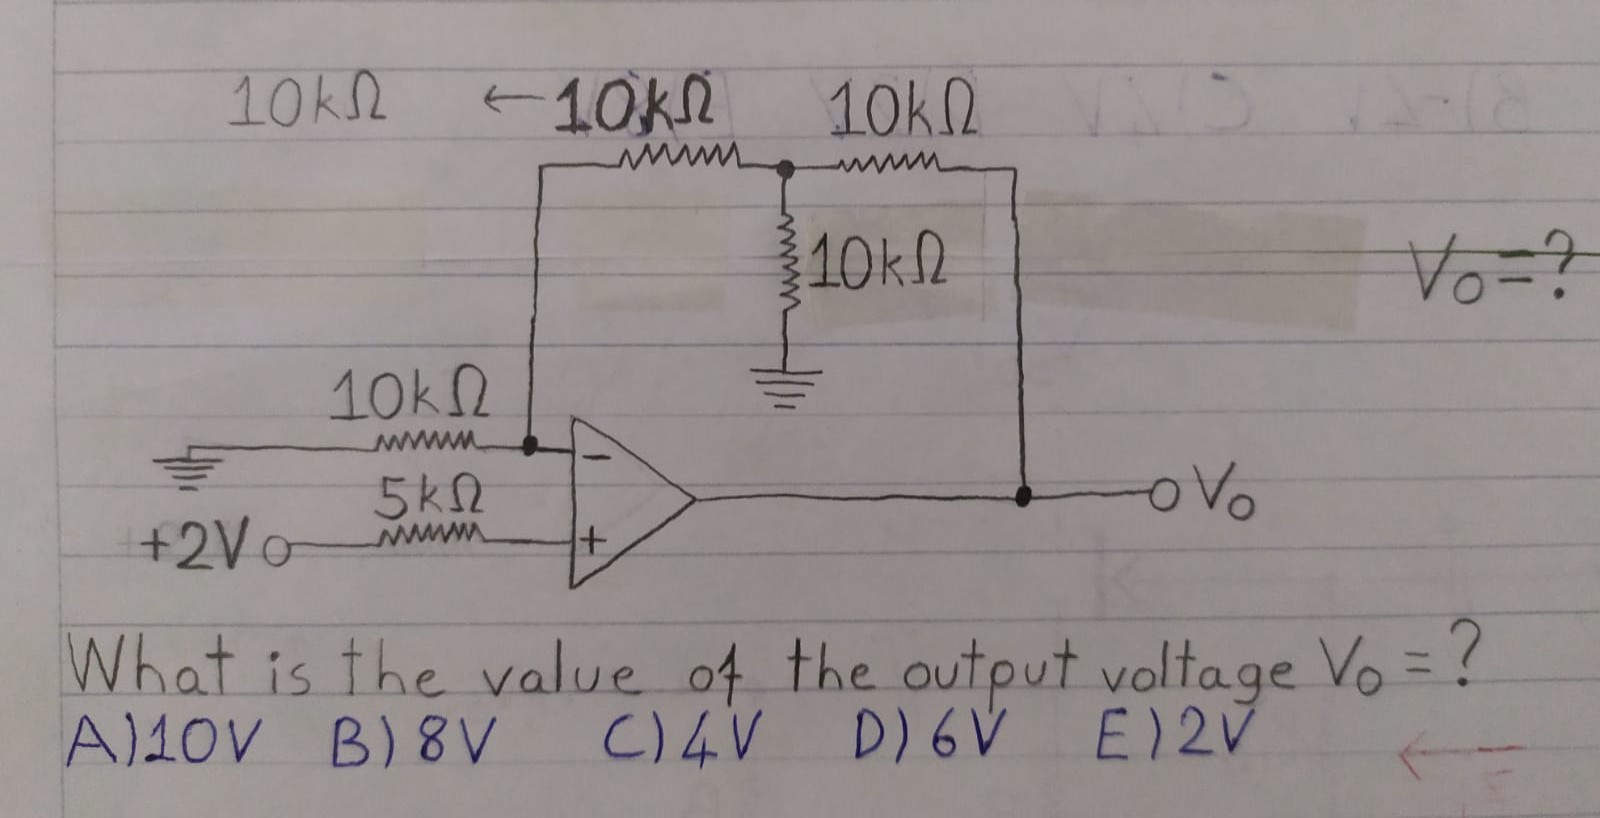 10kΩ ←10kΩ 10kΩ
10kΩ
Vo=?
10kΩ
-
5kΩ
+2V
+
Vo
What is the value of the output voltage Vo=?
A)10V B)8V C)4V D)6V E)2V